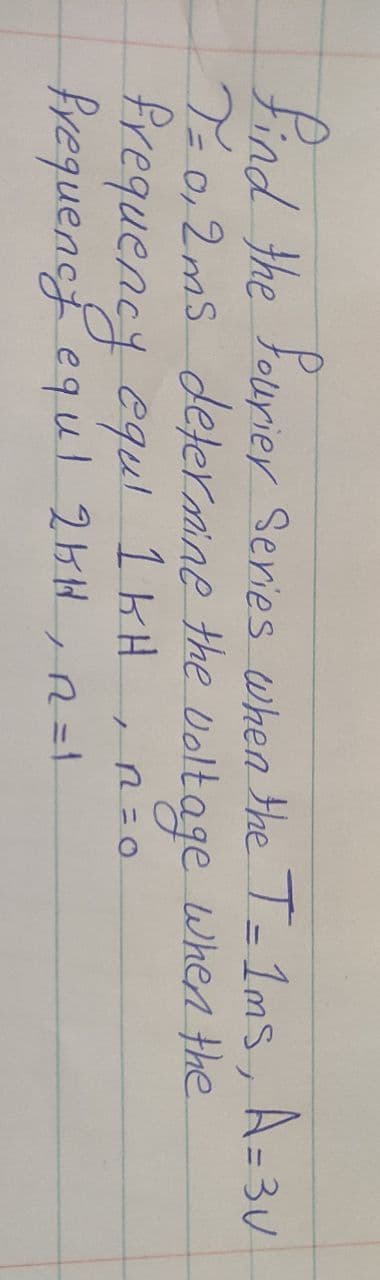 find the fourier series when the T=1ms, A=3V
τ=0,2ms determine the voltage when the
frequency equl 1kH, n=0
frequency equl 2kH, n=1